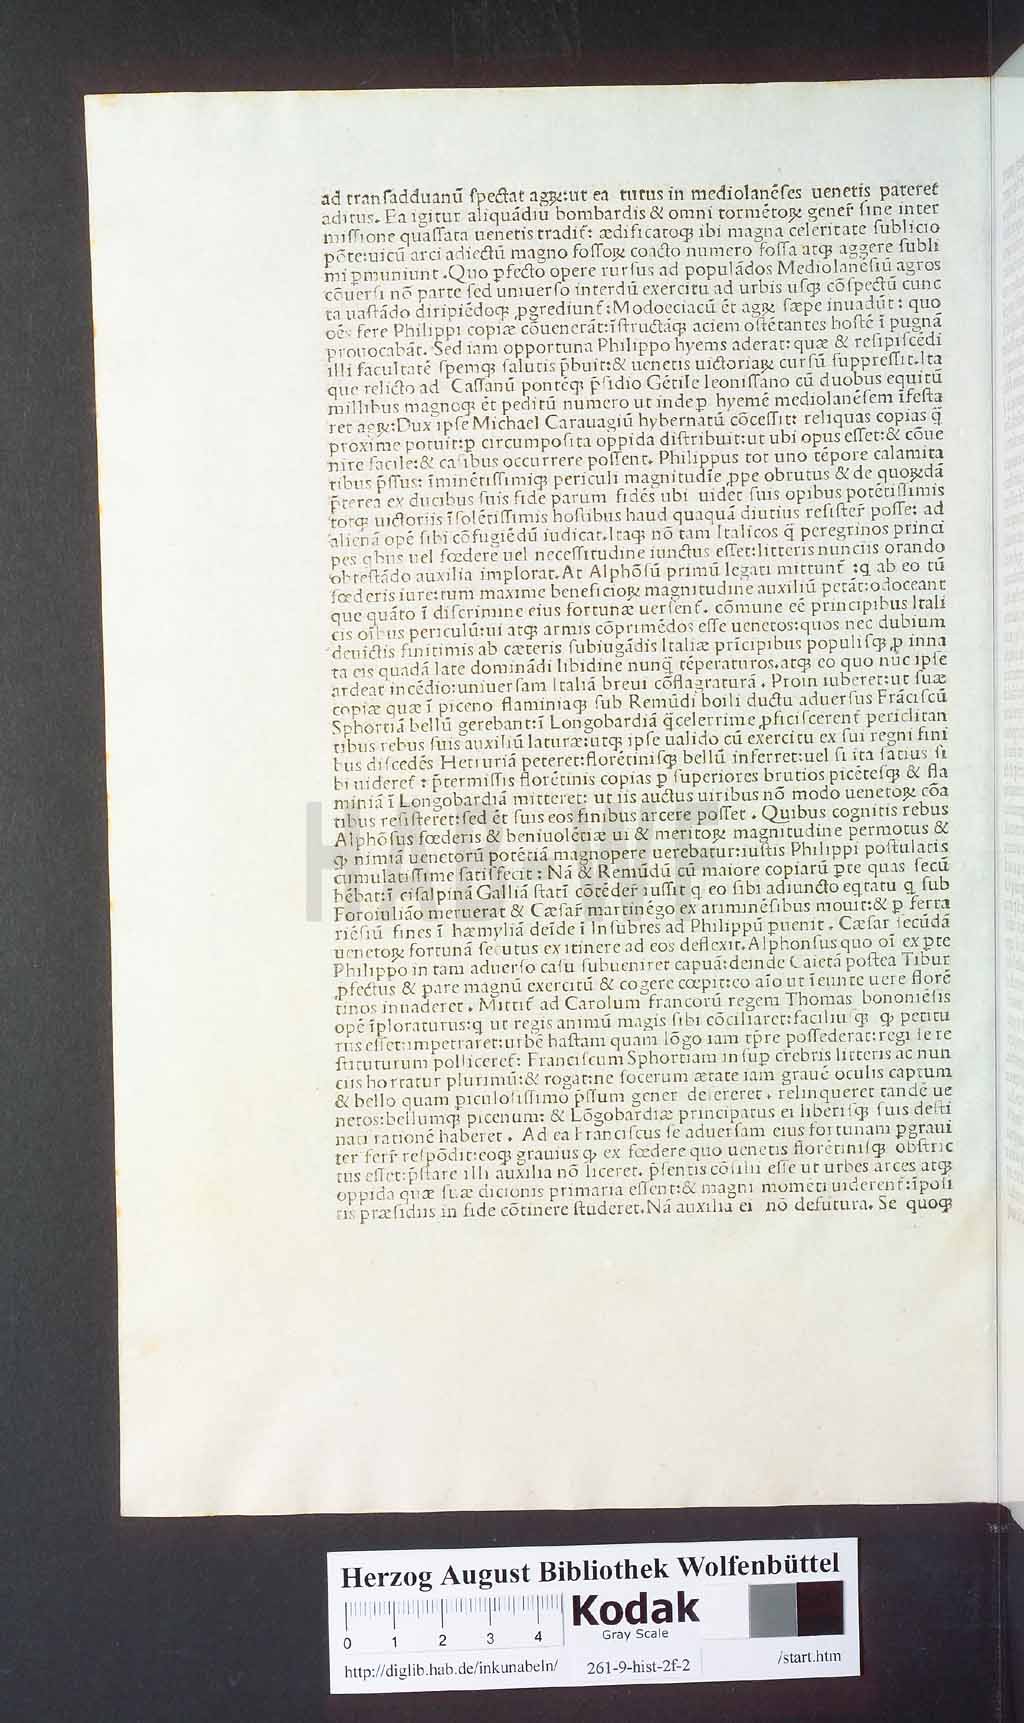 ad tranſadduanū ſpectat agꝝ:ut ea tutus in mediolanēſes uenetis pateret
aditus. Ea igitur aliquādiu bombardis & omni tormētoꝝ gener̄ ſine inter
miſſione quaſſata uenetis tradit̄: ædificatoqꝫ ibi magna celeritate ſublicio
pōte:uicū arci adiectū magno foſſoꝝ coacto numero foſſa atqꝫ aggere ſubli
mi ꝑmuniunt .Quo ꝑfecto opere rurſus ad populādos Mediolanēſiū agros
cōuerſi nō parte ſed uniuerſo interdū exercitu ad urbis uſqꝫ cōſpectū cunc
ta uaſtādo diripiēdoqꝫ ꝓgrediunt̄:Modoeciacū ēt agꝝ ſæpe inuadūt: quo
oēs fere Philippi copiæ cōuenerāt:īſtructāqꝫ aciem oſtētantes hoſtē ī pugnā
prouocabāt. Sed iam opportuna Philippo hyems aderat:quæ & reſipiſcēdi
illi facultatē ſpemqꝫ ſalutis p̄buit:& uenetis uictoriaꝝ curſū ſuppreſſit.Ita
que relicto ad Caſſanū pontēqꝫ p̄ſidio Gētile leoniſſano cū duobus equitū
millibus magnoqꝫ ēt peditū numero ut inde ꝑ hyemē mediolanēſem īfeſta
ret agꝝ:Dux ipſe Michael Carauagiū hybernatū cōceſſit: reliquas copias q̄
proxime potuit:ꝑ circumpoſita oppida diſtribuit:ut ubi opus eſſet:& cōue
nire facile:& caſibus occurrere poſſent. Philippus tot uno tēpore calamita
tibus p̄ſſus: īminētiſſimiqꝫ periculi magnitudīe ꝓpe obrutus & de quoꝝdā
p̄terea ex ducibus ſuis fide parum fidēs ubi uidet ſuis opibus potētiſſimis
torqꝫ uictoriis īſolētiſſimis hoſtibus haud quaquā diutius reſiſter̄ poſſe: ad
alienā opē ſibi cōfugiēdū iudicat.Itaqꝫ nō tam Italicos q̄ peregrinos princi
pes qbus uel fœdere uel neceſſitudine iunctus eſſet:litteris nunciis orando
obteſtādo auxilia implorat.At Alphōſū primū legati mittunt̄ :q ab eo tū
fœderis iure:tum maxime beneficioꝝ magnitudine auxiliū petāt:odoceant
que quāto ī diſcrimine eius fortunæ uerſent̄. cōmune eē principibus Itali
cis oībus periculū:ui atqꝫ armis cōprimēdos eſſe uenetos:quos nec dubium
deuictis finitimis ab cæteris ſubiugādis Italiæ prīcipibus populiſqꝫ ꝓ inna
ta eis quadā late dominādi libidine nunq̄ tēperaturos.atqꝫ eo quo nūc ipſe
ardeat incēdio:uniuerſam Italiā breui cōflagraturā . Proin iuberet:ut ſuæ
copiæ quæ ī piceno flaminiaqꝫ ſub Remūdi boili ductu aduerſus Frāciſcū
Sphortiā bellū gerebant:ī Longobardiā q̄celerrime ꝓficiſcerent̄ periclitan
tibus rebus ſuis auxiliū laturæ:utqꝫ ipſe ualido cū exercitu ex ſui regni fini
bus diſcedēs Hetruriā peteret:florētiniſqꝫ bellū inferret:uel ſi ita ſatius ſi
bi uideret̄ : p̄termiſſis florētinis copias ꝑ ſuperiores brutios picēteſqꝫ & fla
miniā ī Longobardiā mitteret: ut iis auctus uiribus nō modo uenetoꝝ cōa
tibus reſiſteret:ſed ēt ſuis eos finibus arcere poſſet . Quibus cognitis rebus
Alphōſus fœderis & beniuolētiæ ui & meritoꝝ magnitudine permotus &
ꝙ nimiā uenetorū potētiā magnopere uerebatur:iuſtis Philippi poſtulatis
cumulatiſſime ſatiſfecit : Nā & Remūdū cū maiore copiarū ꝑte quas ſecū
hēbat:ī eiſalpinā Galliā ſtatī cōtēder̄ iuſſit q eo ſibi adiuncto eqtatu q ſub
Foroiuliāo meruerat & Cæſar̄ martinēgo ex ariminēſibus mouit:& ꝑ ferra
riēſiū fines ī hæmyliā deīde ī Inſubres ad Philippū ꝑuenit . Cæſar ſecūdā
uenetoꝝ fortunā ſecutus ex itinere ad eos deflexit.Alphonſus quo oī ex ꝑte
Philippo in tam aduerſo caſu ſubueniret capuā:deinde Caietā poſtea Tibur
ꝓfectus & pare magnū exercitū & cogere cœpit:eo aīo ut īeunte uere florē
tinos inuaderet . Mittit̄ ad Carolum francorū regem Thomas bononiēſis
opē īploraturus:q ut regis animū magis ſibi cōciliaret:faciliu qꝫ ꝙ petitu
rus eſſet:impetraret:urbē haſtam quam lōgo iam tp̄re poſſederat:regi ſe re
ſtituturum polliceret̄: Franciſcum Sphortiam inſuꝑ crebris litteris ac nun
ciis hortatur plurimū:& rogat:ne ſocerum ætate iam grauē oculis captum
& bello quam ꝑiculoſiſſimo p̄ſſum gener deſereret . relinqueret tandē ue
netos:bellumqꝫ picenum: & Lōgobardiæ principatus ei liberiſqꝫ ſuis deſti
nati rationē haberet . Ad ea Franciſcus ſe aduerſam eius fortunam ꝑgraui
ter ferr̄ reſpōdit:eoqꝫ grauius ꝙ ex fœdere quo uenetis florētiniſqꝫ obſtric
tus eſſet:p̄ſtare illi auxilia nō liceret. p̄ſentis cōſilii eſſe ut urbes arces atqꝫ
oppida quæ ſuæ dicionis primaria eſſent:& magni momēti uiderent̄:īpoſi
tis præſidiis in fide cōtinere ſtuderet.Nā auxilia ei nō defutura. Se quoqꝫ
HAB WF
Herzog August Bibliothek Wolfenbüttel
0 1 2 3 4
Kodak
Gray Scale
http://diglib.hab.de/inkunabeln/ 261-9-hist-2f-2 /start.htm